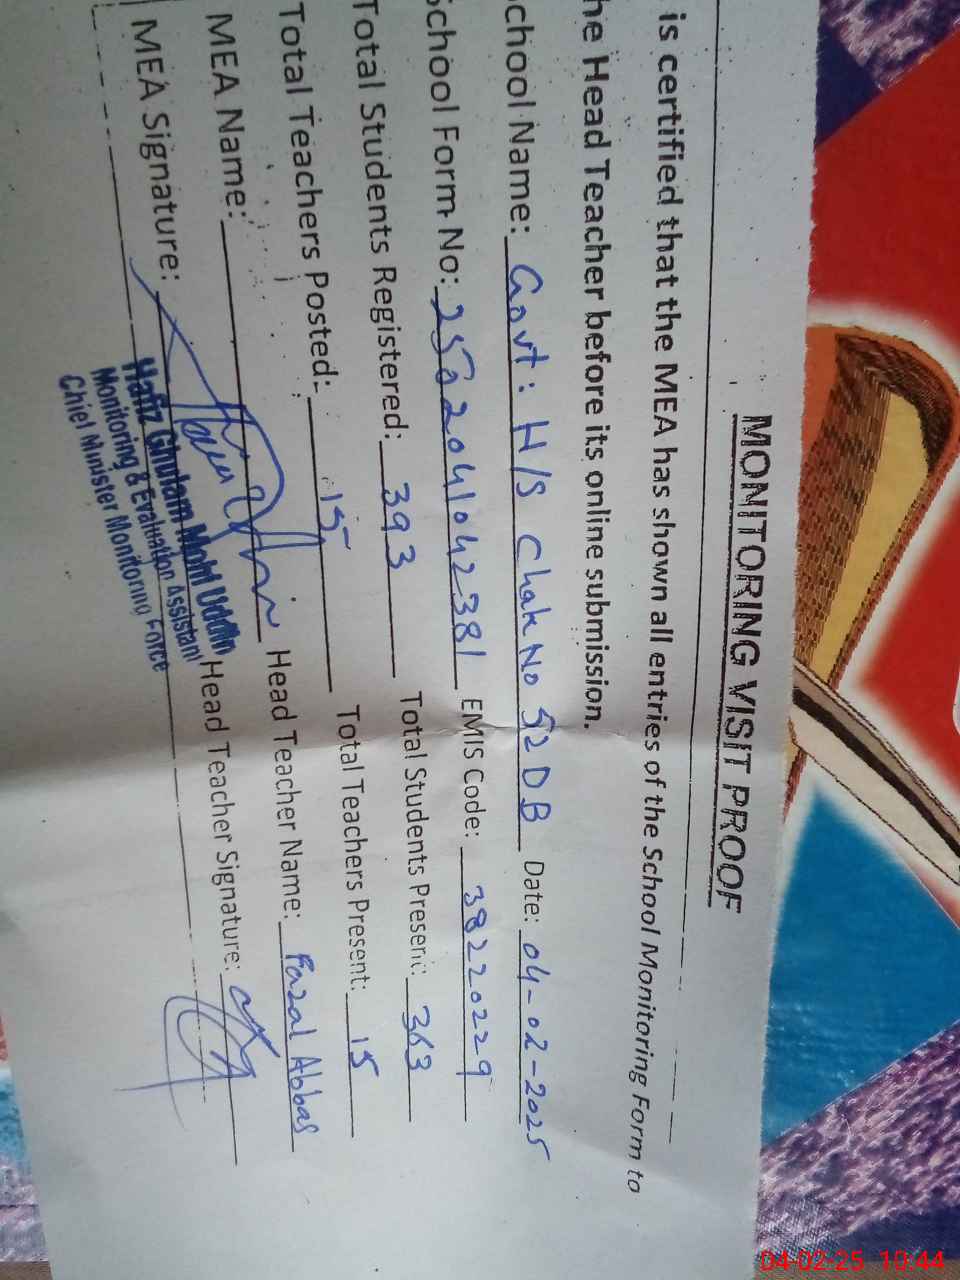 MONITORING VISIT PROOF
is certified that the MEA has shown all entries of the School Monitoring Form to
he Head Teacher before its online submission.
chool Name: Govt: H/S Chak No 52 DB Date: 04-02-2025
School Form No: 2502041042381 EMIS Code: 38220229
Total Students Registered: 393 Total Students Present: 363
Total Teachers Posted: 15 Total Teachers Present: 15
MEA Name: Head Teacher Name: Fazal Abbas
MEA Signature: Head Teacher Signature:
Hafiz Ghulam Mohi Uddin
Monitoring & Evaluation Assistant
Chief Minister Monitoring Force
04-02-25 10:44